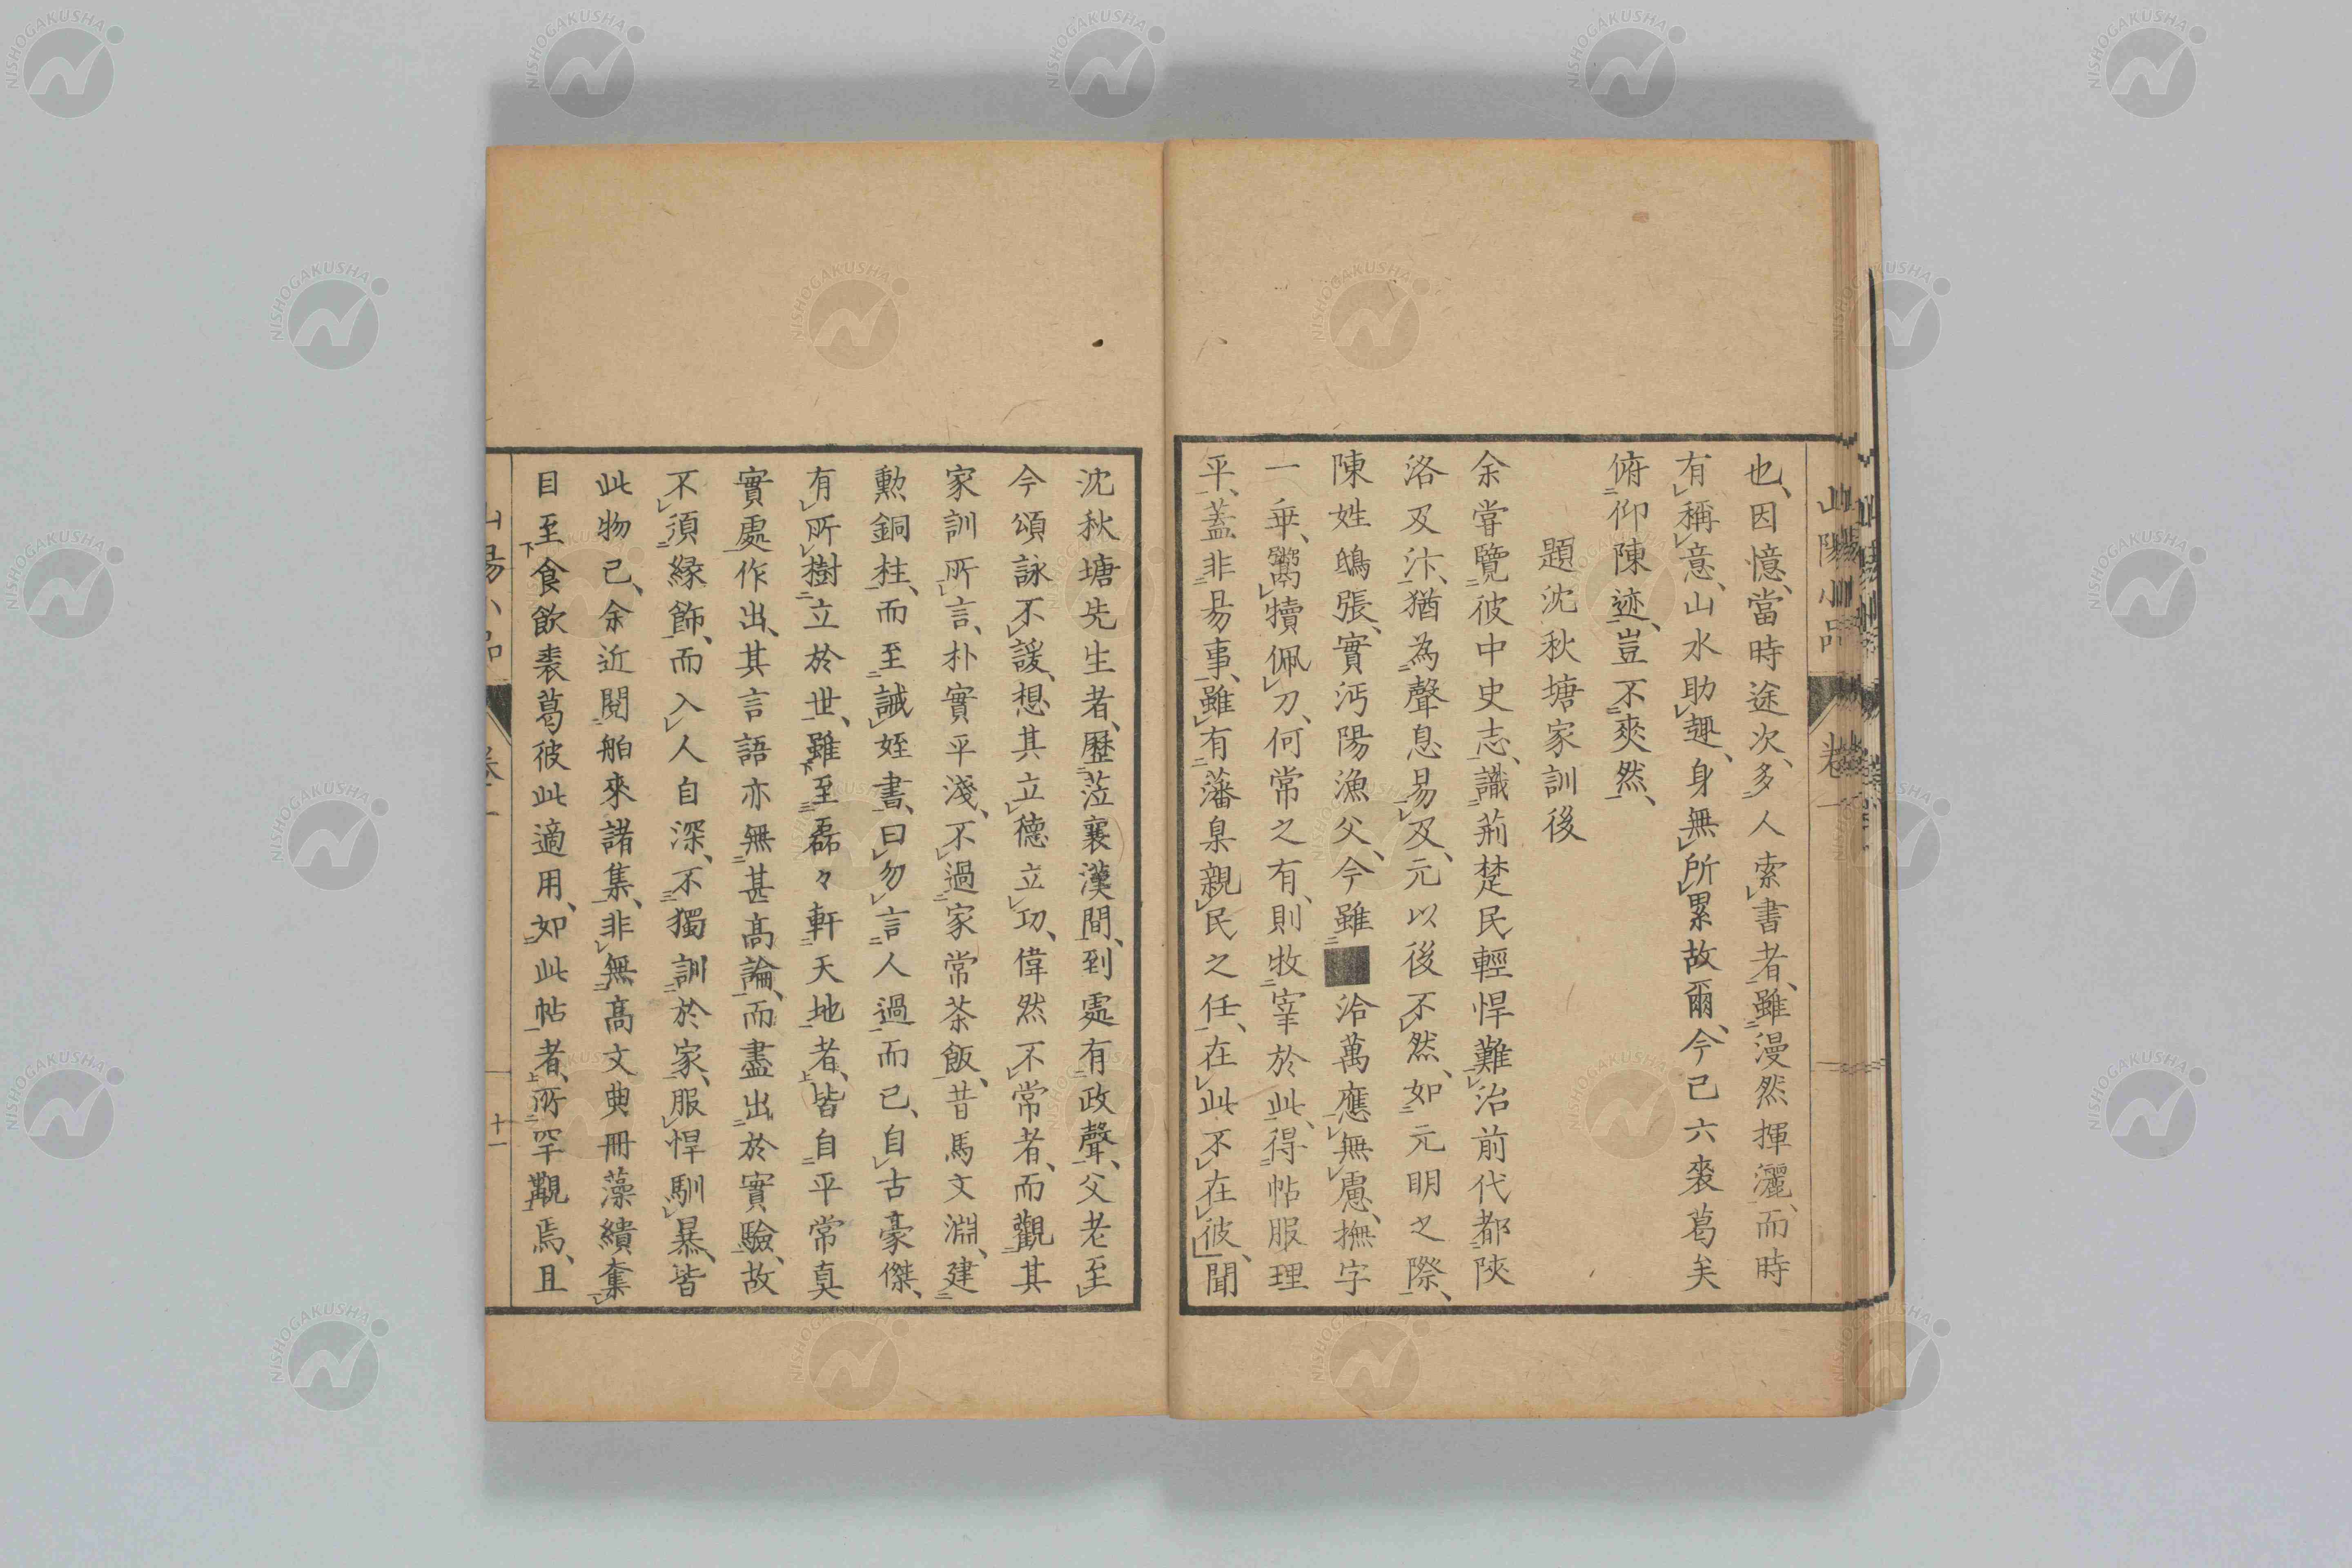 也、因憶、當時途次、多人索書者、雖漫然揮灑、而時
有稱意、山水助趣、身無所累故爾、今已六裘葛矣
俯仰陳迹、豈不爽然、
題沈秋塘家訓後
余甞覽彼中史志、識荊楚民輕悍難治前代都陝
洛及汴、猶為聲息易及、元以後不然、如元明之際、
陳姓鴟張、實沔陽漁父、今雖■洽萬應無慮、撫字
一乖、鬻犢佩刀、何常之有、則牧宰於此、得帖服理
平、蓋非易事、雖有藩臬親民之任、在此不在彼、聞
沈秋塘先生者、歷蒞襄漢間、到處有政聲、父老至
今頌詠不諼、想其立德立功、偉然不常者、而觀其
家訓所言、朴實平淺、不過家常茶飯、昔馬文淵、建
勲銅柱、而至誡姪書、曰勿言人過而已、自古豪傑、
有所樹立於世、雖至磊々軒天地者、皆自平常真
實處作出、其言語亦無甚高論、而盡出於實驗、故
不須緣飾、而入人自深、不獨訓於家、服悍馴暴、皆
此物已、余近閱舶來諸集、非無高文典冊藻繢奪
目至食飲裘葛彼此適用、如此帖者、所罕觀焉、且
山陽小品 卷一
山陽小品 卷一 十一
NISHOGAKUSHA